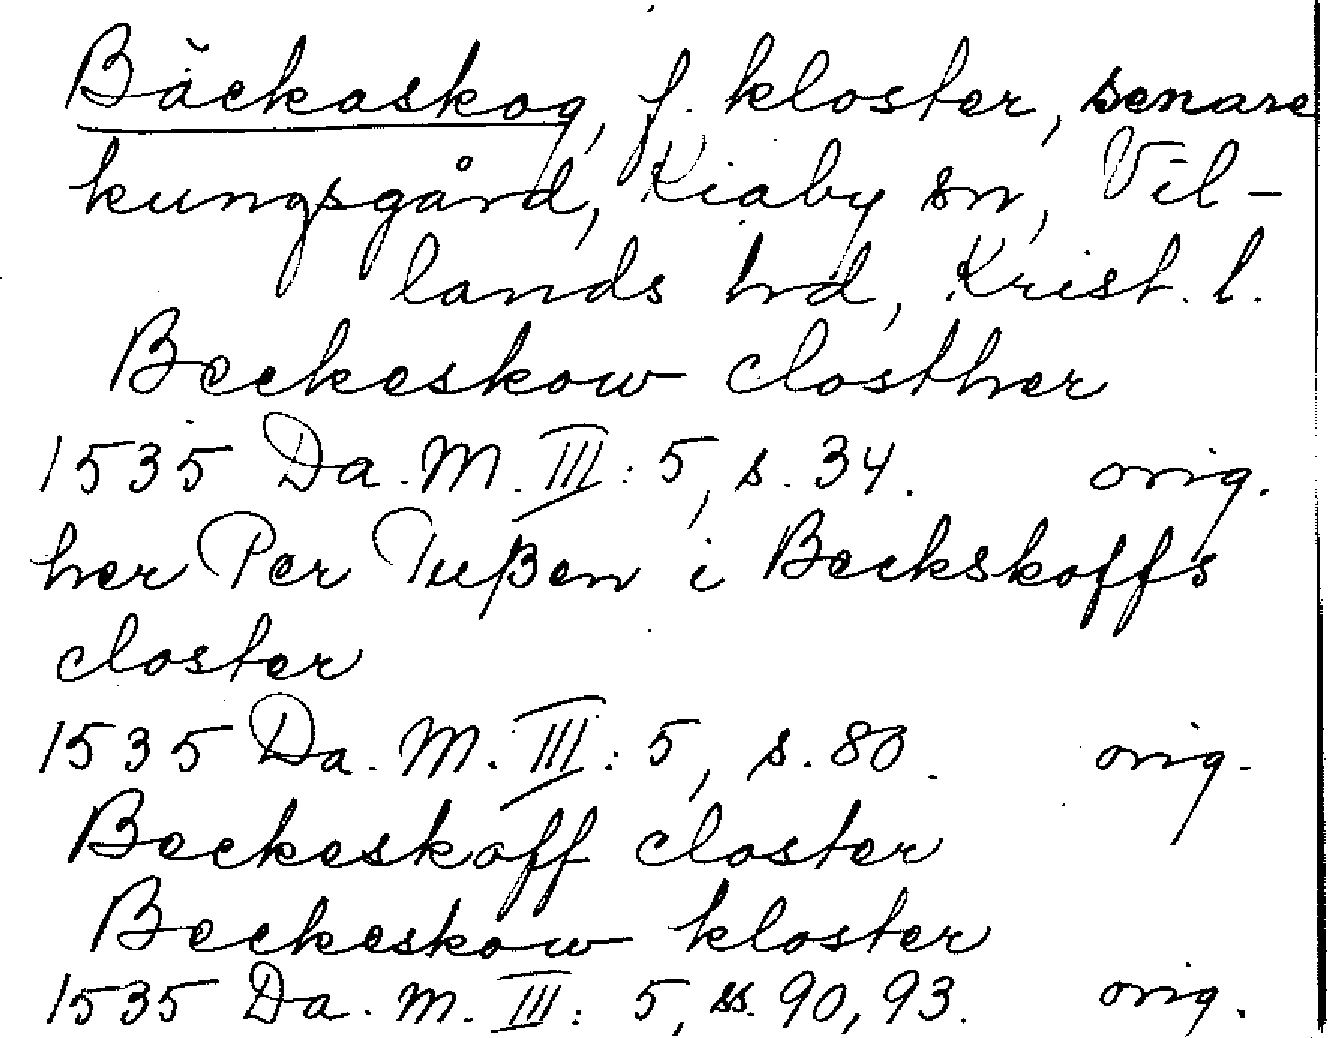 Bäckaskog, f. kloster, senare
kungsgård, Kiaby sn, Vil-
lands hd, Krist. l.
Beckeskow closther
1535 Da. M. III: 5, s. 34. orig.
her Per Tußen i Beckskoffs
closter
1535 Da. M. III: 5, s. 80. orig.
Beckeskoff closter
Beckeskow kloster
1535 Da. M. III: 5, ss. 90, 93. orig.